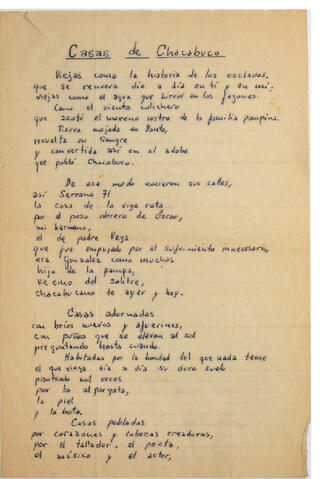 Casas de Chacabuco
Viejas como la historia de los esclavos,
que se renueva día a día en ti y en mi;
viejas como el agua que hirvió en los fogones.
Como el viento
que azotó el moreno rostro de la familia pampina.
Tierra mojada en llanto,
revuelta en sangre
y convertida así en el adobe
que pobló Chacabuco.
De ese modo nacieron sus calles,
así Serrano 71
la casa de la viga rota
por el peso obrero de Oscar,
mi hermano,
el de padre Vega
que fue empujado por el sufrimiento innecesario,
era Gonzalez como muchos
hijo de la pampa,
vecino del salitre,
chacabucano de ayer y hoy.
Casas adornadas
con bríos nuevos y afuerinos,
con puños que se elevan al sol
preguntando hasta cuando.
Habitadas por la bondad del que nada tiene
el que riega día a día su duro suelo
pisoteado mil veces
por la alpargata,
la piel
y la bota.
Casas pobladas
por corazones y cabezas creadoras,
por el tallador, el poeta,
el músico y el actor,